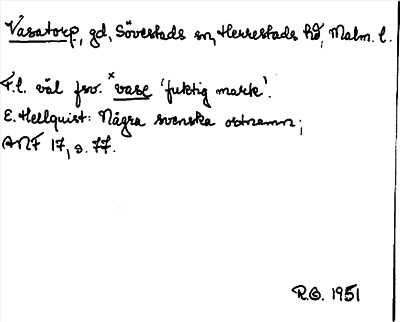 Vasatorp, gd, Sövestads sn, Herrestads hd, Malm. l.
F.l. väl fsv. *vase 'fuktig mark'.
E. Hellquist: Några svenska ortnamn;
ANF 17, s. 77.
R.G. 1951